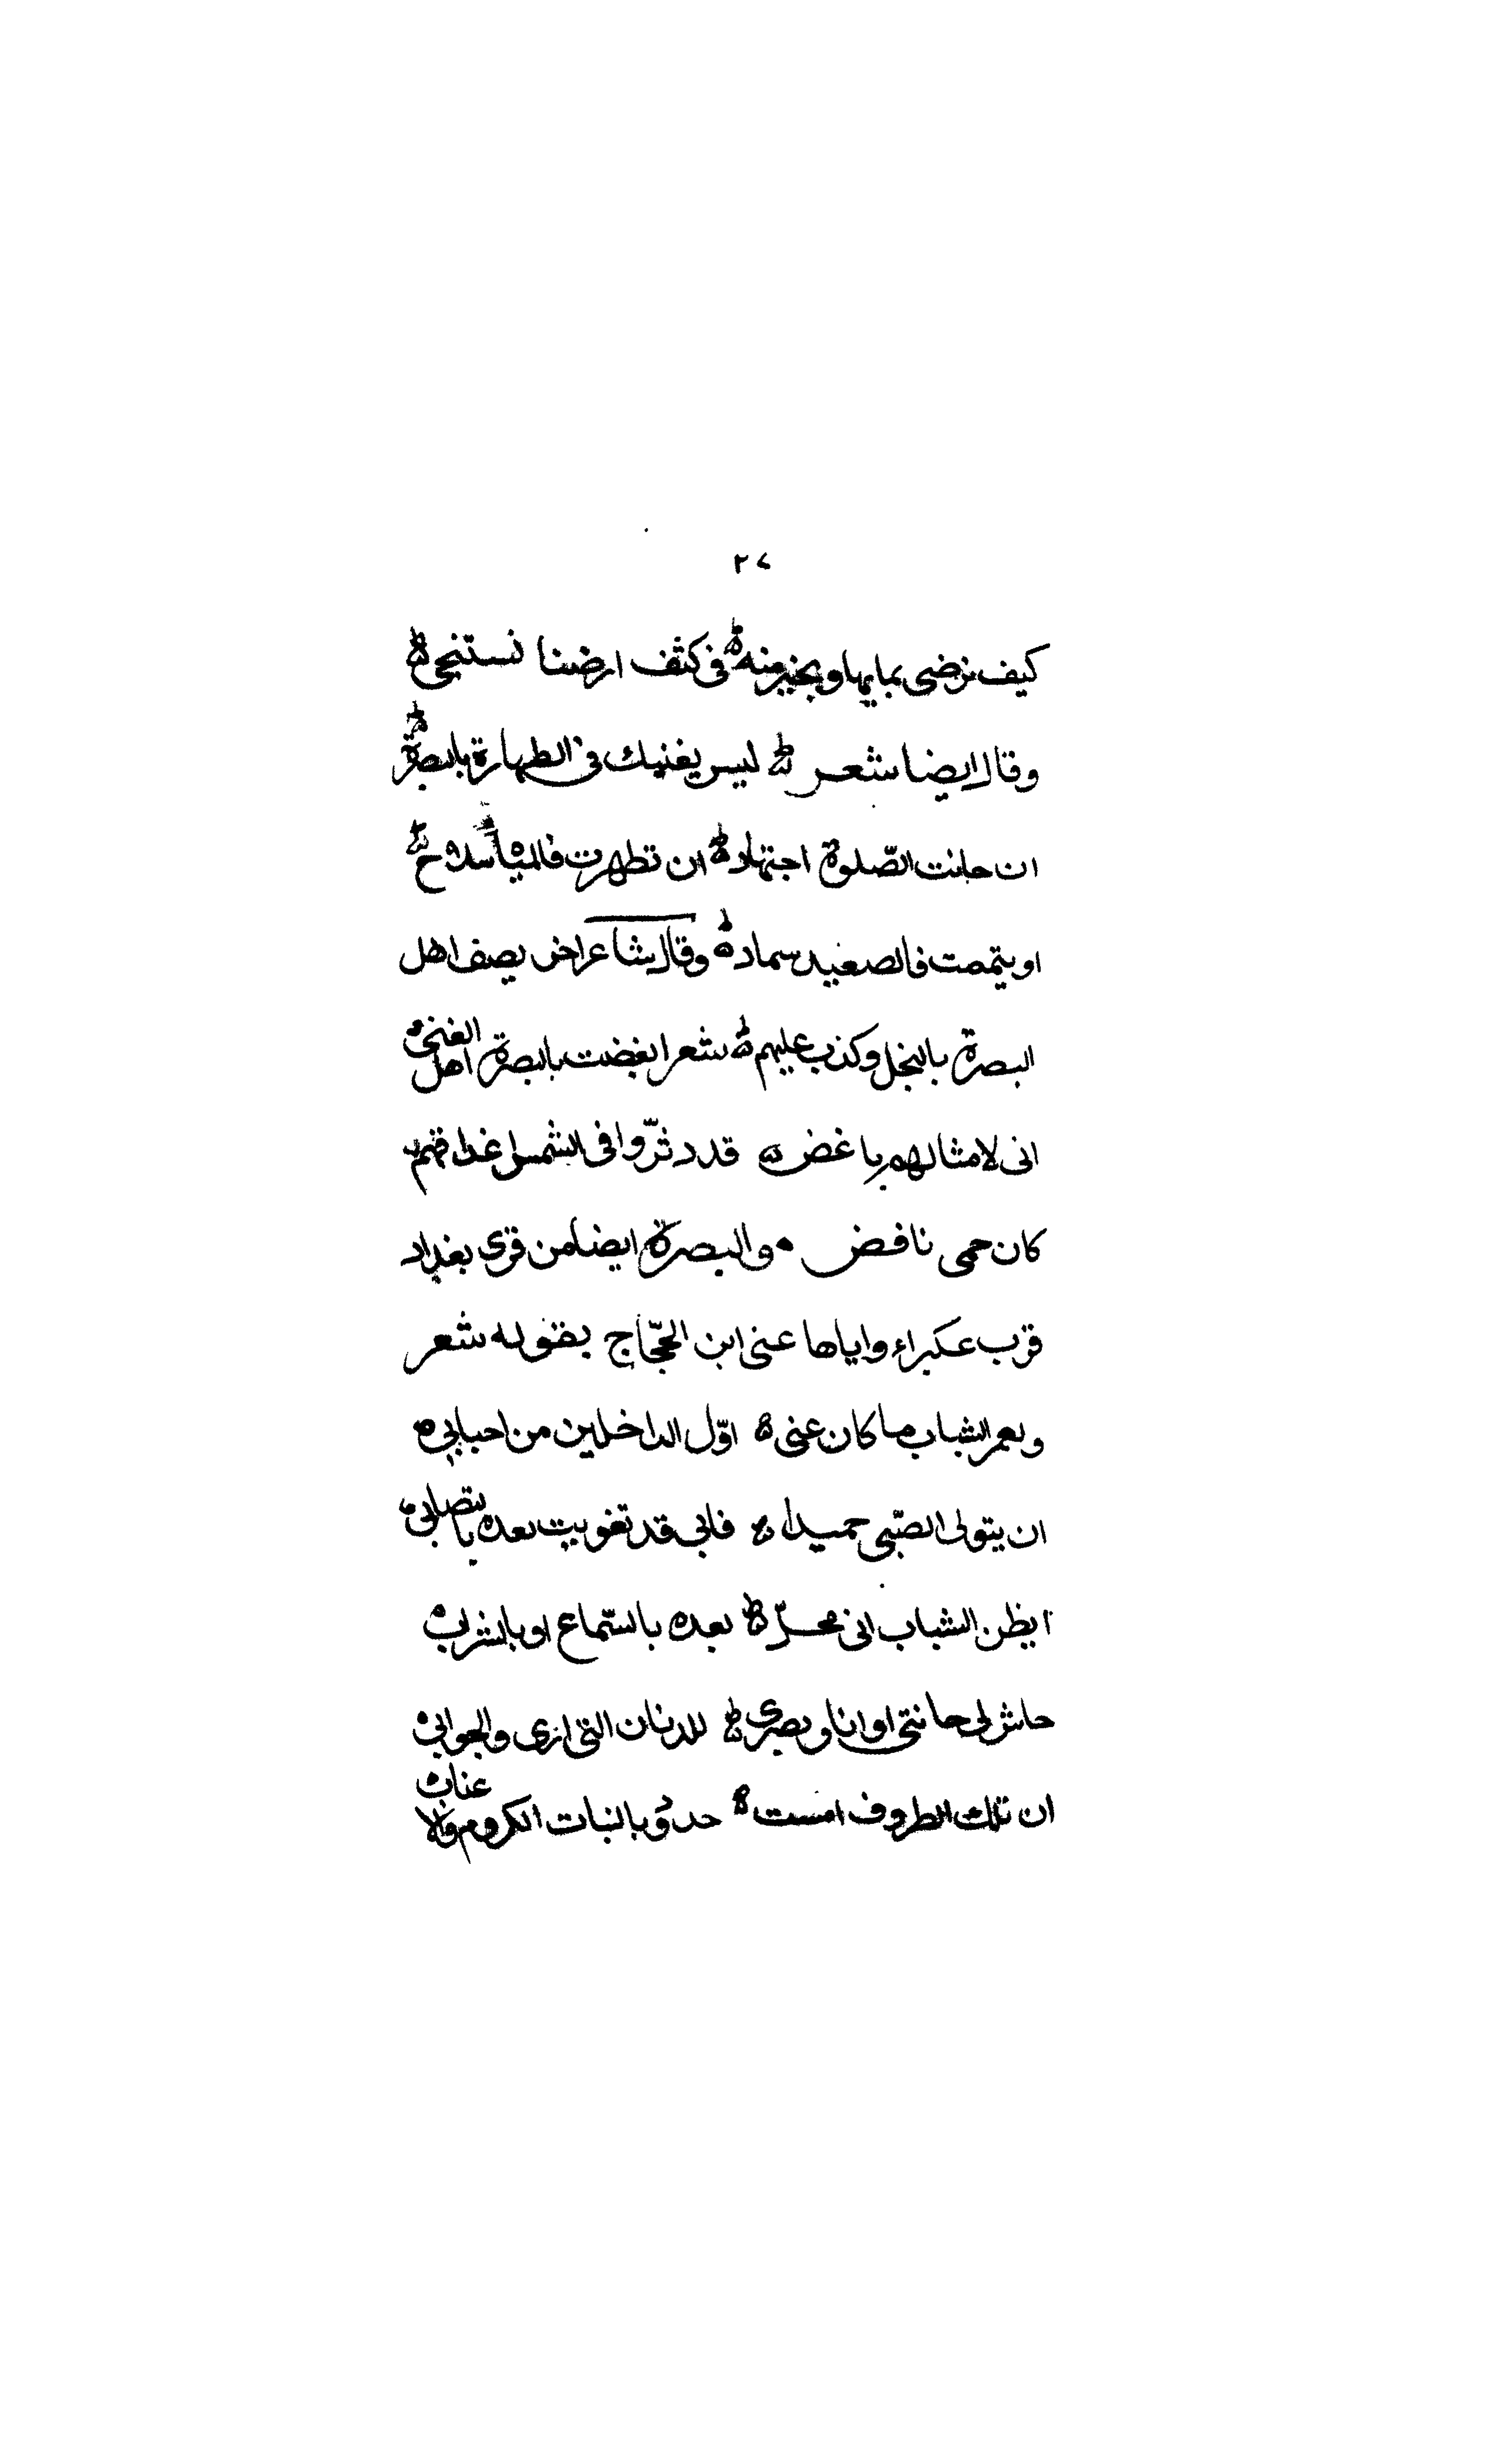 ٢٧
كيف نرضى بمايها وبخير منه في كثف ارضنا نستنجى
وقال ايضا شعر ليس يغنيك في الطهارة بالبصرة
ان حانت الصّلوة اجتهاد ان تطهرت فالمياه سلاح
او يتممت فالصعيد سماد وقال شاعر اخر يصف اهل
البصرة بالبخل وكذب عليهم شعر ابغضت بالبصرة اهل الغنى
انى لامثالهم باغض قد دثّروا فى الشمس اغداقهم
كان حمى نافض والبصرة ايضا من قرى بغداد
قرب عكبراء واياها عنى ابن الحجّاج بقوله شعر
ولعمر الشباب ما كان عنى اوّل الداخلين من احبابى
ان يتولى الصّبى حميدا فانى قد تغوييت بعده بالتصابى
ايظن الشباب انى مخلّ بعده بالسّماع او بالشراب
حاش لى حانتى اوانا وبصرى للدنان التى ارى والجوابى
ان تلك الظروف امست حدوبا لنبات الكروم والاعناب